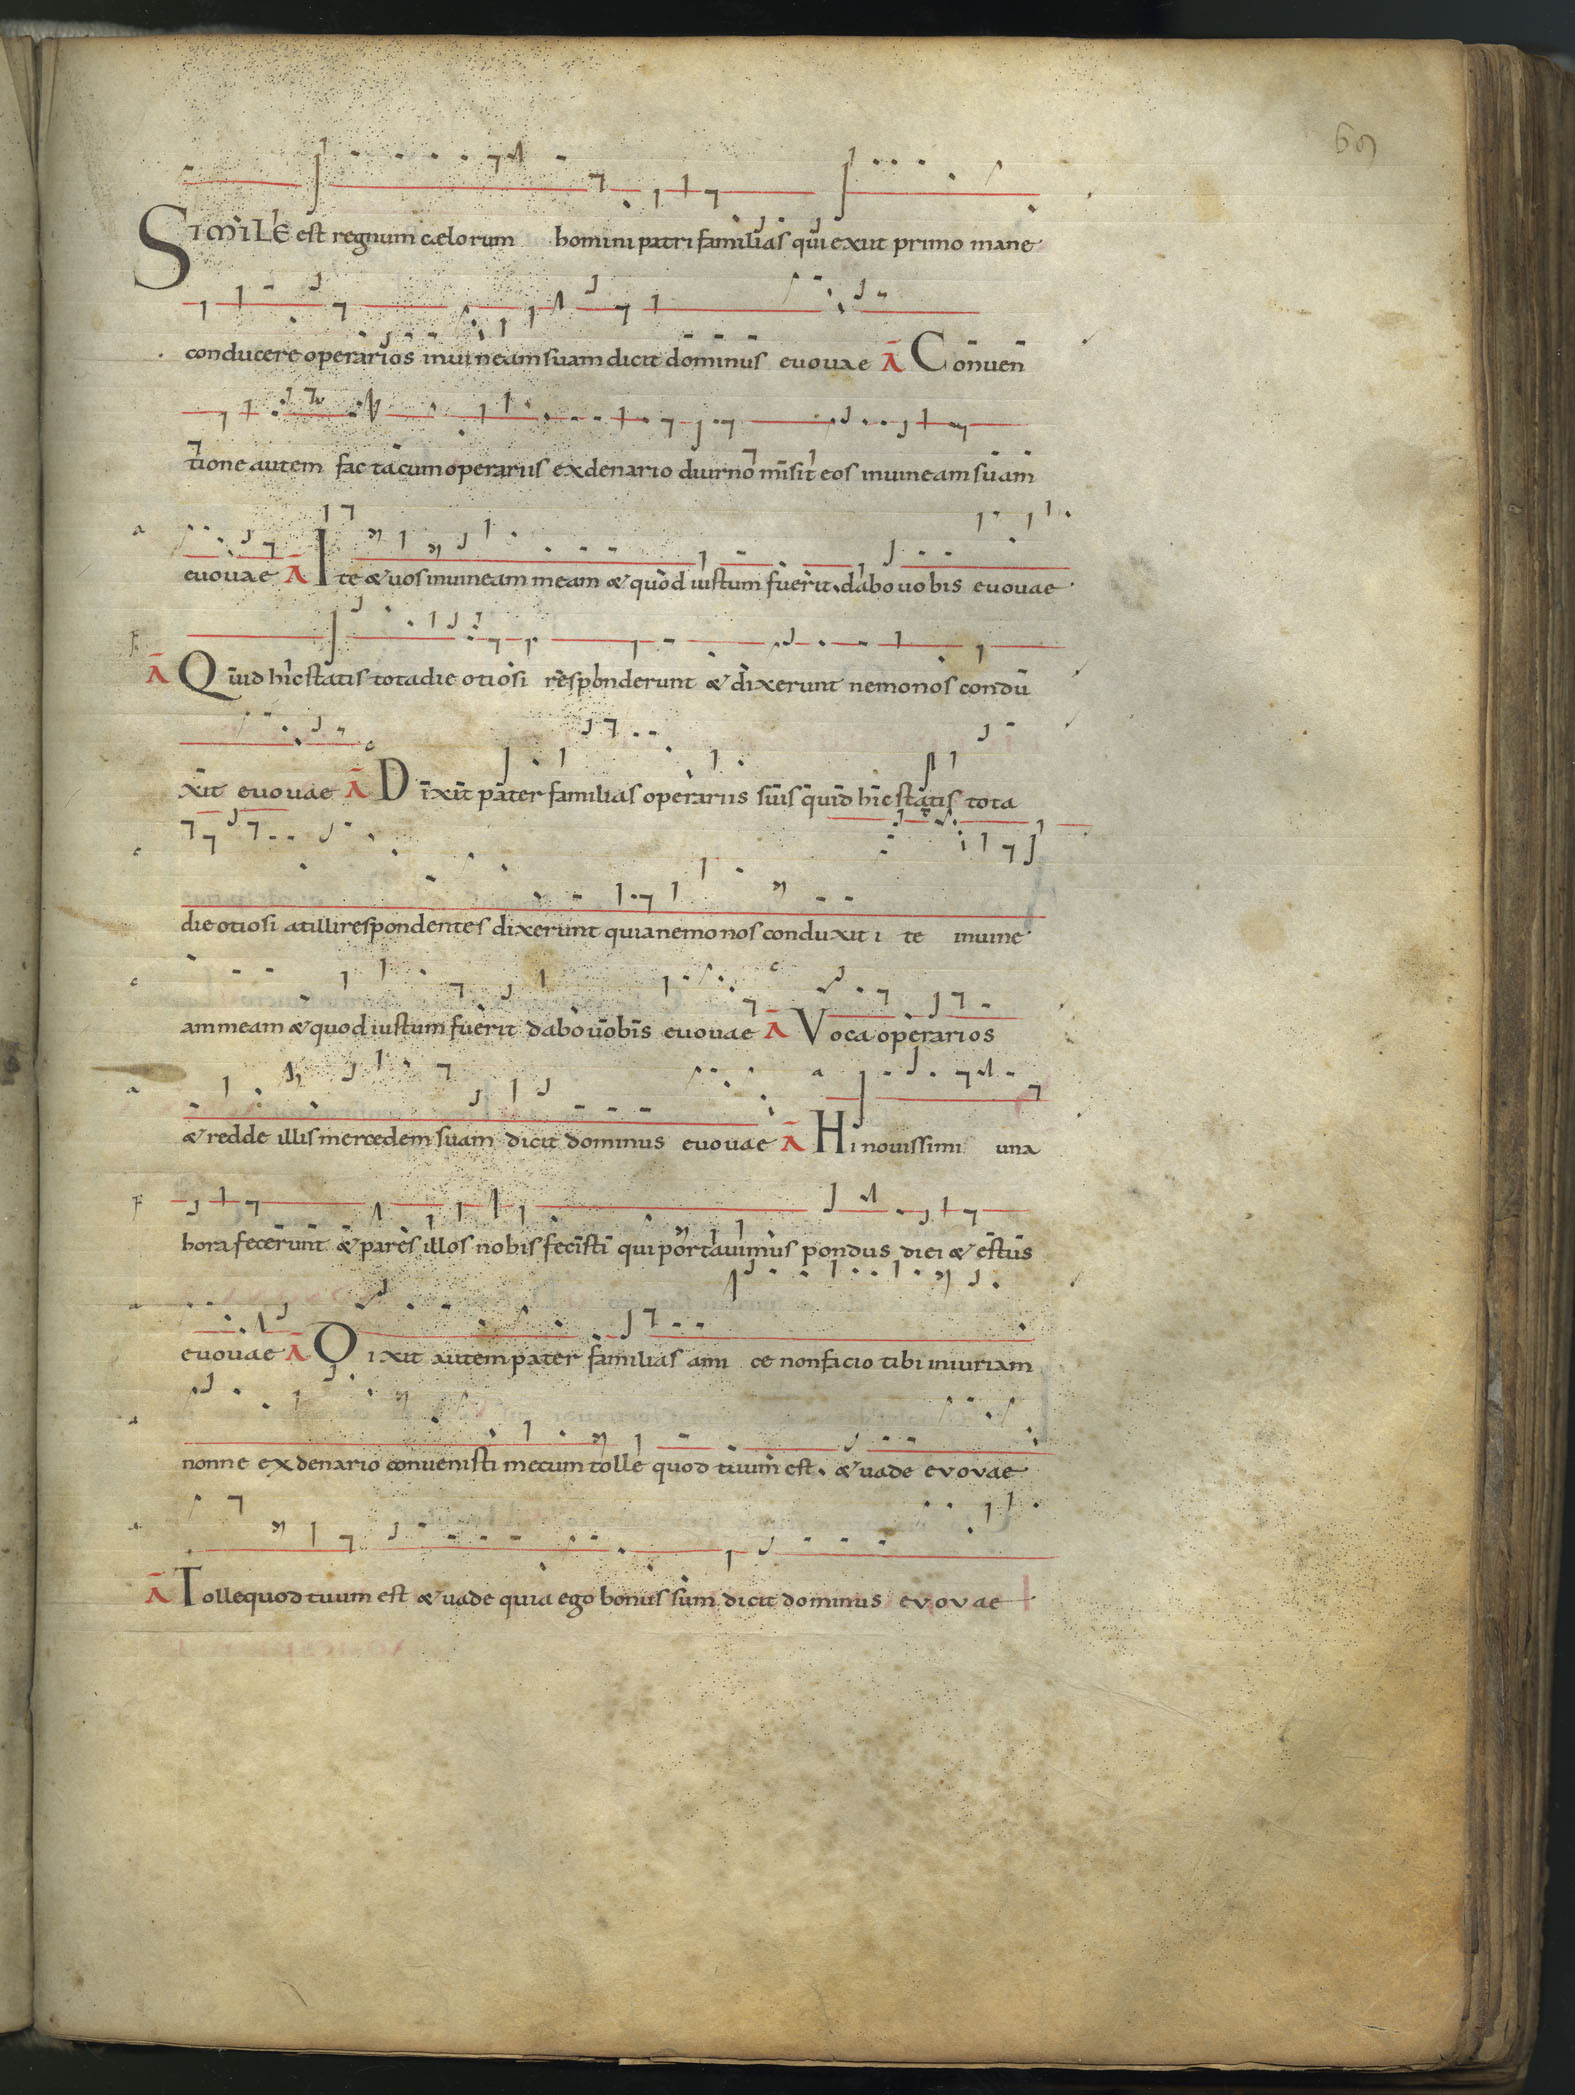 69
SIMILE est regnum cælorum homini patri familias qui exiit primo mane
conducere operarios in vineam suam dicit dominus evovae A Conven
tione autem facta cum operariis ex denario diurno misit eos in vineam suam
evovae A Ite & vos in vineam meam & quod iustum fuerit dabo vobis evovae
A Quid hic statis tota die otiosi responderunt & dixerunt nemo nos condu
xit evovae A Dixit pater familias operariis suis quid hic statis tota
die otiosi at illi respondentes dixerunt quia nemo nos conduxit ite in vine
am meam & quod iustum fuerit dabo vobis evovae A Voca operarios
& redde illis mercedem suam dicit dominus evovae A Hi novissimi una
hora fecerunt & pares illos nobis fecisti qui portavimus pondus diei & estus
evovae A Dixit autem pater familias amice non facio tibi iniuriam
nonne ex denario convenisti mecum tolle quod tuum est. & vade evovae
A Tolle quod tuum est & vade quia ego bonus sum dicit dominus evovae